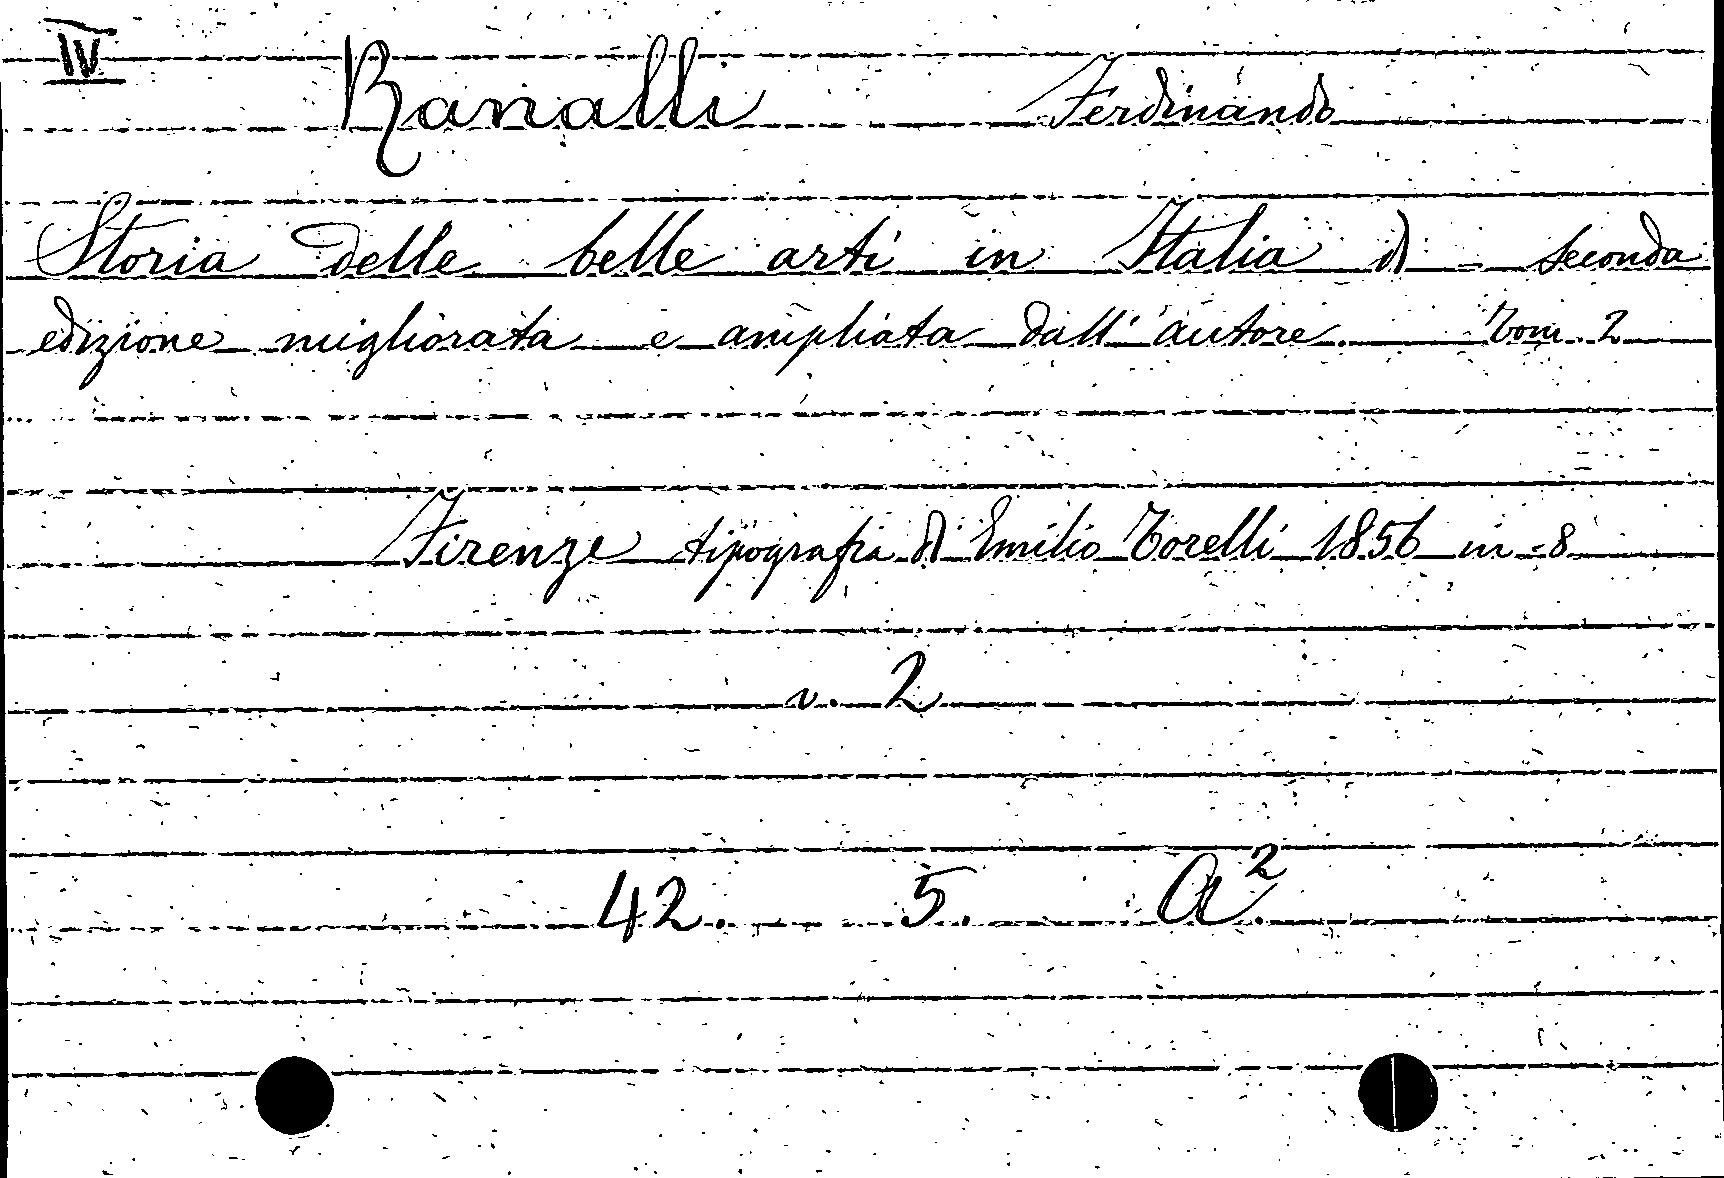 IV
Ranalli Ferdinando
Storia delle belle arti in Italia di - seconda
edizione migliorata e ampliata dall'autore. Tom. 2
Firenze tipografia di Emilio Torelli 1856 in -8
v. 2
42. 5. A².